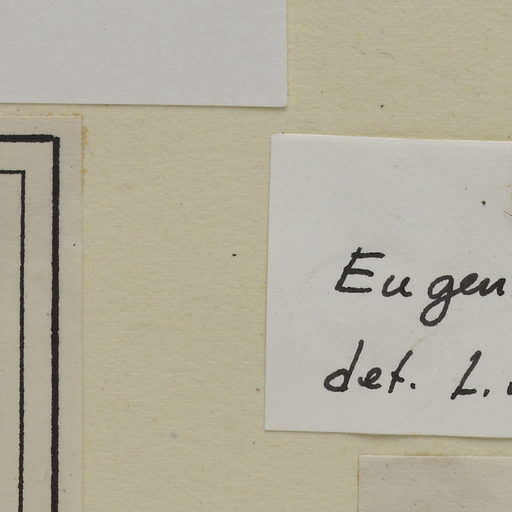 Eugen
det. L.